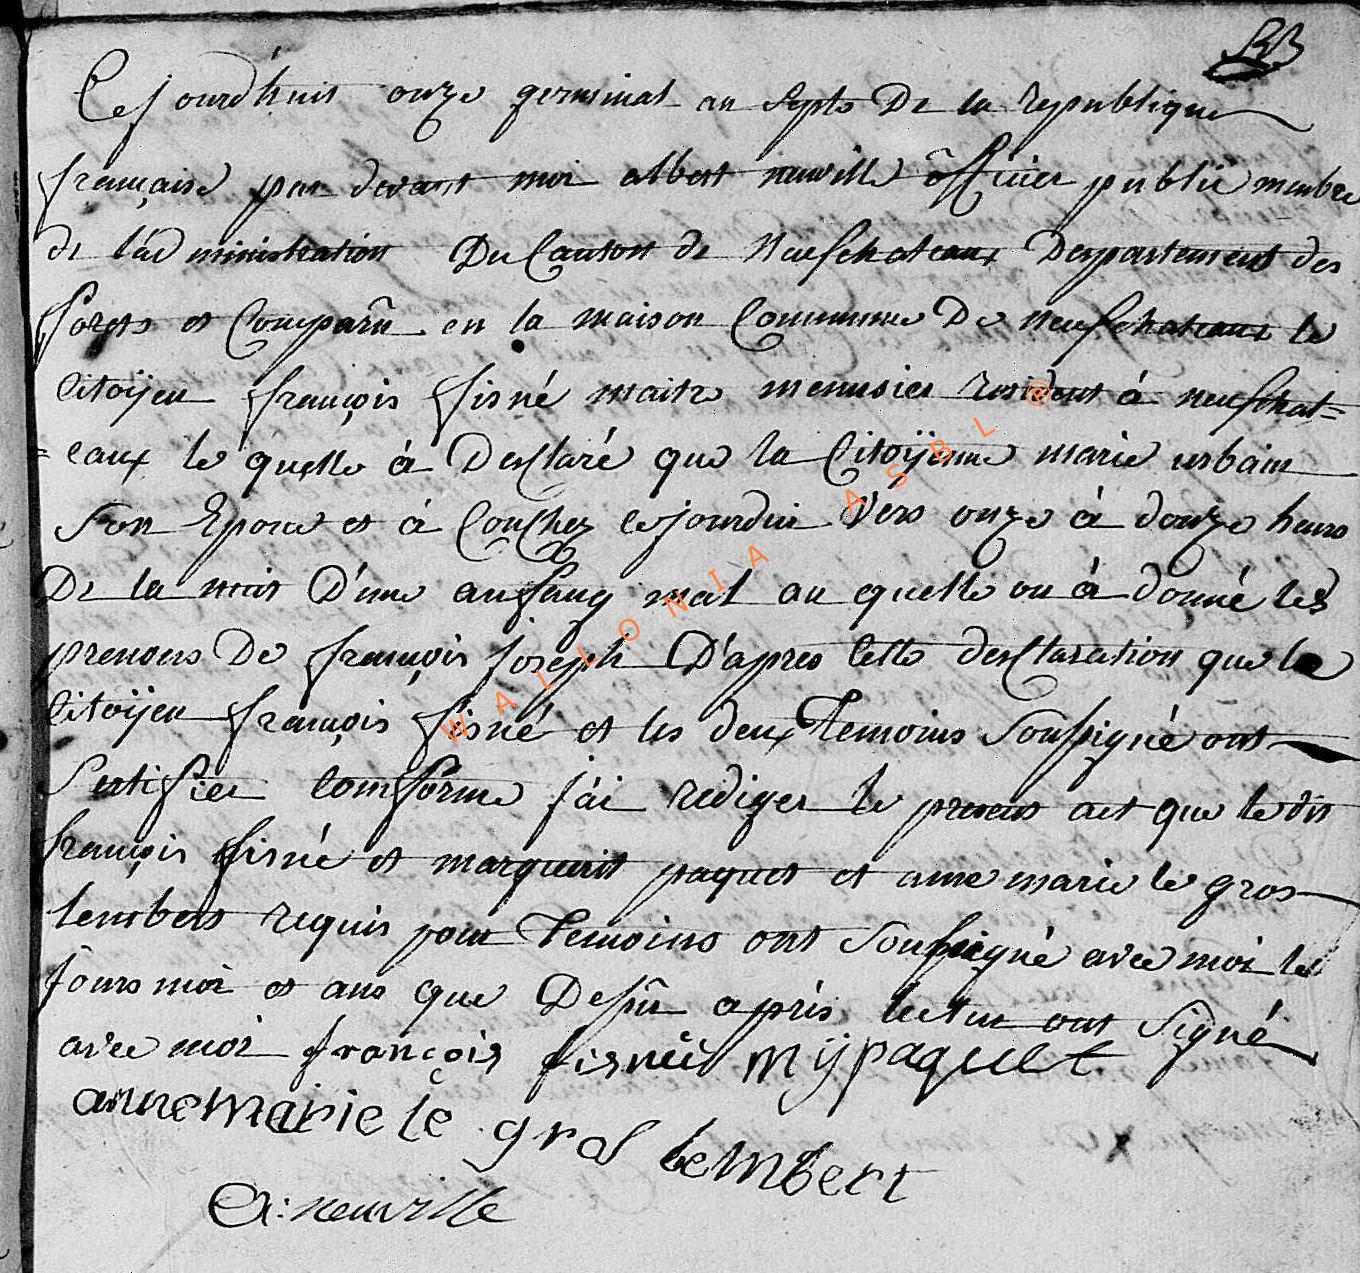 Cejourd'huit onze germinal an Septe De la republique
française par devant moi albert neuville officier public membre
de l'administration Du Canton de Neufchateaux Departement des
forets et Comparû en la maison Commune De neufchateaux le
Citoÿen françois fisné maitre menusier resident à neufchat=
=eaux le quelle à Desclaré que la Citoÿenne marie urbain
son Epouse et à Couchez cejourdui vers onze à douze heurs
De la nuit D'une anfang mal au quelle on à donné les
prenoms De françois joseph D'apres cette desclaration que le
Citoÿen françois fisné et les deux Temoins Soussigné ont
Sertifier comforme j'ai rediger le present act que le dit
françois fisné et marguerit paquet et anne marie le gros
lembert requis pour Temoins ont Soussigné avec moi les
jours moi et ans que Desûr après lectur ont Signé
avec moi françois fisnéé mÿpaquet
annemarie le gros lembert
A: neuville
WALLONIA ASBL ©